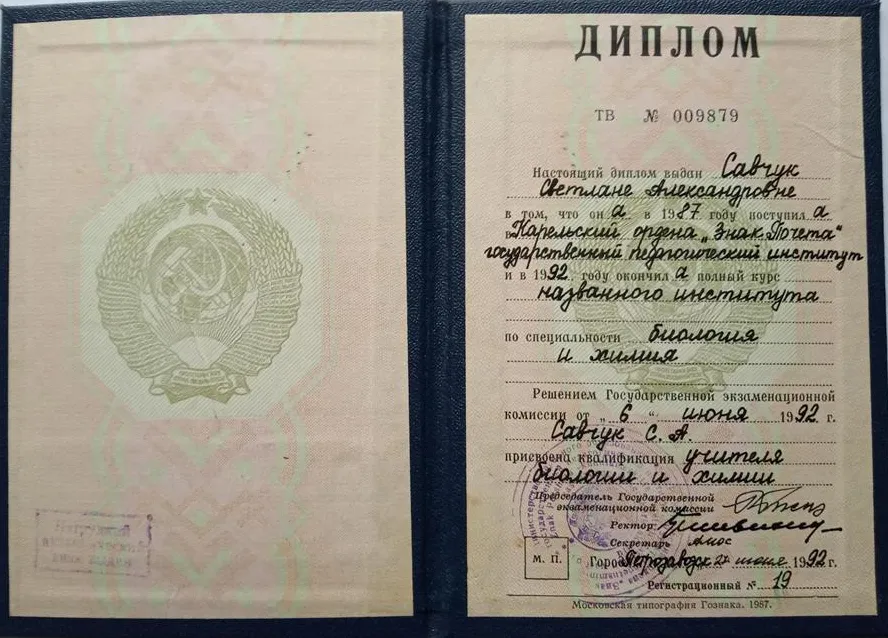 ДИПЛОМ
ТВ № 009879
Настоящий диплом выдан Савчук
Светлане Александровне
в том, что он а в 1987 году поступил а
в Карельский ордена „Знак Почета“
государственный педагогический институт
и в 1992 году окончил а полный курс
названного института
по специальности биология
и химия
Решением Государственной экзаменационной
комиссии от „ 6 “ июня 1992 г.
Савчук С. А.
присвоена квалификация учителя
биологии и химии
Председатель Государственной
экзаменационной комиссии
Ректор:
Секретарь
М. П.
Город Петрозаводск 27 июня 1992 г.
Регистрационный № 19
Московская типография Гознака. 1987.